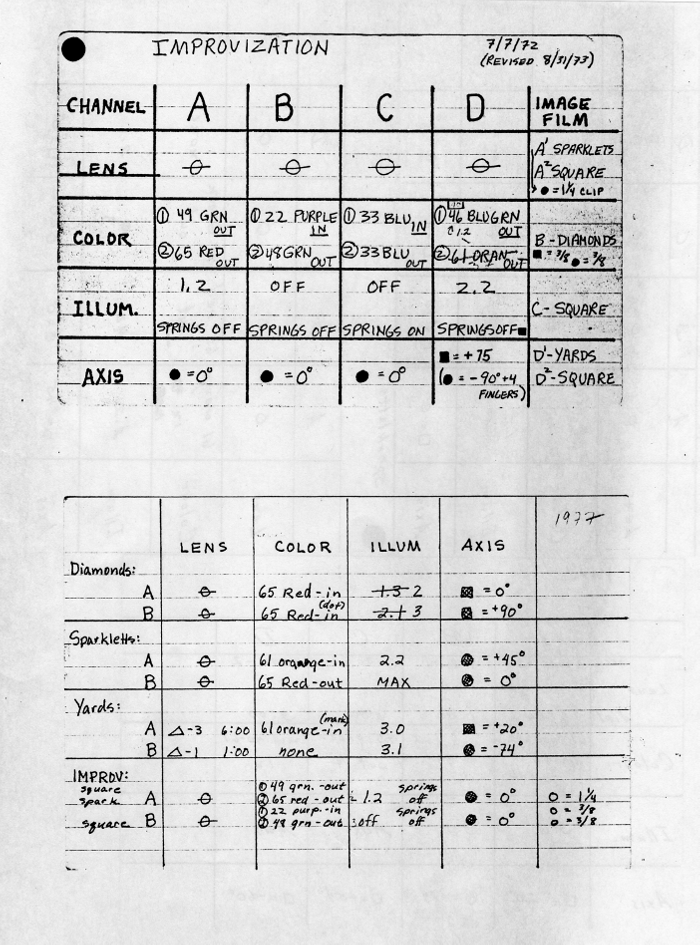 IMPROVIZATION 7/7/72
(REVISED 8/31/73)
CHANNEL A B C D IMAGE FILM
LENS ⊖ ⊖ ⊖ ⊖ A' SPARKLETS
A² SQUARE
● = 1¼ CLIP
COLOR ① 49 GRN OUT ① 22 PURPLE IN ① 33 BLU IN ① 46 BLUGRN OUT
② 65 RED OUT ② 48 GRN OUT ② 33 BLU OUT ② 61 ORAN OUT B - DIAMONDS
■ = 3/8 ● = 3/8
ILLUM. 1.2 OFF OFF 2.2 C - SQUARE
SPRINGS OFF SPRINGS OFF SPRINGS ON SPRINGS OFF ■
AXIS ● = 0° ● = 0° ● = 0° ■ = +75 D' - YARDS
(● = -90° + 4 FINGERS) D² - SQUARE
1977
LENS COLOR ILLUM AXIS
Diamonds:
A ⊖ 65 Red - in 1.3 2 = 0°
B ⊖ 65 Red - in (dot) 2.1 3 = +90°
Sparkletts:
A ⊖ 61 orange - in 2.2 = +45°
B ⊖ 65 Red - out MAX = 0°
Yards:
A △ - 3 6:00 61 orange - in (mark) 3.0 = +20°
B △ - 1 1:00 none 3.1 = -74°
IMPROV:
square ① 49 grn. - out springs
spark A ⊖ ② 65 red - out = 1.2 off = 0° O = 1¼
① 22 purp. - in springs O = 3/8
square B ⊖ ② 48 grn - out : off off = 0° O = 3/8